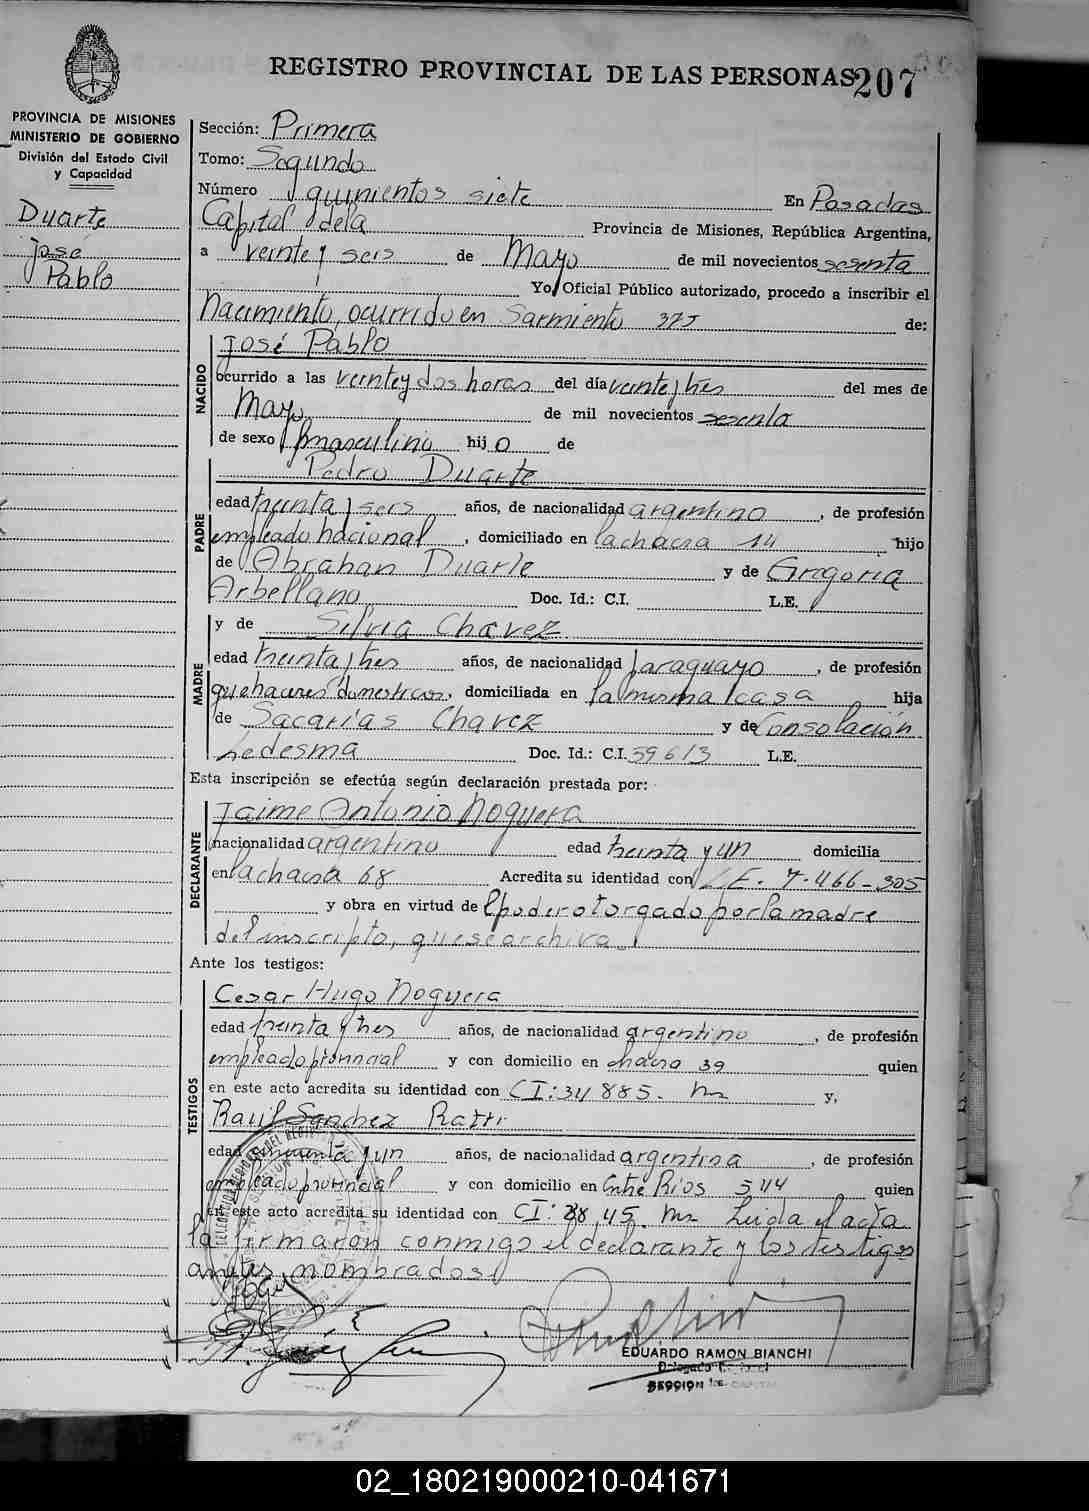 REGISTRO PROVINCIAL DE LAS PERSONAS 207
PROVINCIA DE MISIONES
MINISTERIO DE GOBIERNO
División del Estado Civil
y Capacidad
Duarte
José
Pablo
Sección: Primera
Tomo: Segundo
Número quinientos siete En Posadas
Capital dela Provincia de Misiones, República Argentina,
a veinte y seis de Mayo de mil novecientos sesenta
Yo, Oficial Público autorizado, procedo a inscribir el
Nacimiento, ocurrido en Sarmiento 375 de:
NACIDO
José Pablo
ocurrido a las veinte y dos horas del día veinte y tres del mes de
Mayo de mil novecientos sesenta
de sexo masculino hijo de
PADRE
Pedro Duarte
edad treinta y seis años, de nacionalidad argentino, de profesión
empleado nacional, domiciliado en la chacra 14 hijo
de Abrahan Duarte y de Gregoria
Arbellano Doc. Id.: C.I. L.E.
MADRE
y de Silvia Chavez
edad treinta y tres años, de nacionalidad paraguayo, de profesión
quehaceres domesticos, domiciliada en la misma casa hija
de Sacarias Chavez y de Consolación
Ledesma Doc. Id.: C.I. 59613 L.E.
Esta inscripción se efectúa según declaración prestada por:
DECLARANTE
Jaime Antonio Noguera
nacionalidad argentino edad treinta y un domicilia
en la chacra 68 Acredita su identidad con L.E. 7.466-305
y obra en virtud de el poder otorgado por la madre
del inscripto, que se archiva
Ante los testigos:
TESTIGOS
Cesar Hugo Noguera
edad treinta y tres años, de nacionalidad argentino, de profesión
empleado provincial y con domicilio en chacra 39 quien
en este acto acredita su identidad con CI: 34885. y,
Raul Sanchez Ratti
edad y un años, de nacionalidad argentina, de profesión
empleado provincial y con domicilio en Entre Rios 544 quien
en este acto acredita su identidad con CI: Leida el acta
la firmaron conmigo el declarante y los testigos
antes nombrados
EDUARDO RAMON BIANCHI
SECCION 1ra. CAPITAL
02_180219000210-041671